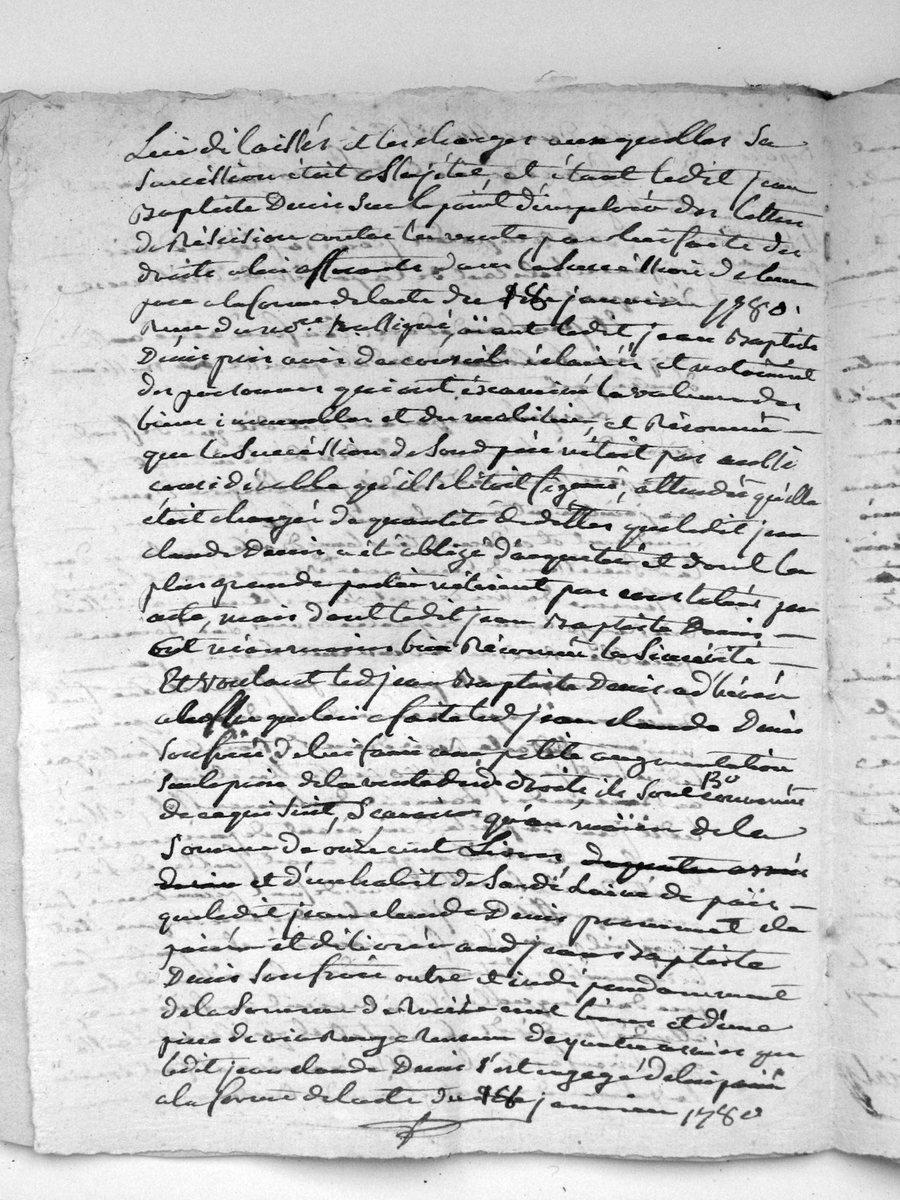 Lui délaissés et les charges auxquelles sa
succéssion était assujétie, et étant ledit jean
Baptiste Denis sur le point d'implorér des lettres
de Réscision contre la vente par lui faite des
droits a lui afferants dans la succéssion de leur
pere a la forme de l'acte du 18 janvier 1780.
Reçu du no.re soussigné, aïant ledit jean Baptiste
Denis pris avis de conseils éclairés et notament
des personnes qui ont éxaminé la valeur des
biens immeubles et du mobilier, et Réconnu
que la succéssion de sond pere n'était pas aussi
considérable qu'il se l'était figuré, attendu qu'elle
était chargée de quantité de dettes que ledit jean
claude Denis a été obligé d'acquiter et dont la
plus grande partie n'étoient pas constatées par
acte, mais dont ledit jean Baptiste Denis
ont néanmoins bien Réconnu la sincérité
Et voulant led jean Baptiste Denis adhérér
a l'offre que lui a faite led jean claude Denis
son frere de lui faire une petite augmentation
sur le prix de la vente desd droits ils sont convenu
de ce qui suit, sçavoir qu'au moïen de la
somme de onze cent Livres, de quatre asnées
de vin et d'un habit de sardé Lainé de païs
que ledit jean claude Denis promet de
païér et délivrér aud jean Baptiste
Denis son frere outre et indépendamment
de la somme de trois cent livres et d'une
piece de vin Rouge de quatre asnées que
ledit jean claude Denis s'est engagé de lui païér
a la forme de l'acte du 18 janvier 1780